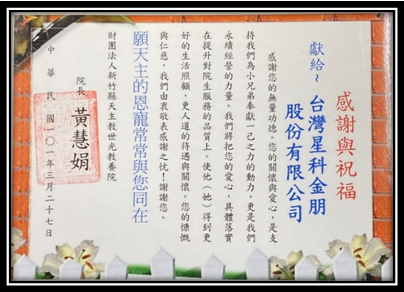 感謝與祝福
獻給~ 台灣星科金朋
股份有限公司
感謝您的無量功德。您的關懷與愛心,是支
持我們為小兄弟奉獻一己之力的動力,更是我們
永續經營的力量。我們將把您的愛心,具體落實
在提升對院生服務的品質上。使他(她)得到更
好的生活照顧,更人道的待遇與關懷。您的慷慨
與仁慈,我們由衷敬表感謝之忱!謝謝您。
願天主的恩寵常常與您同在
財團法人新竹縣天主教世光教養院
院長 黃慧娟
中華民國一〇一年三月二十七日